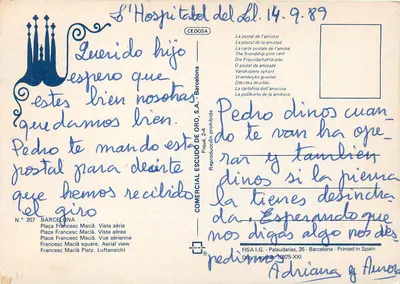 L'Hospitalet del Ll. 14.9.89
Querido hijo
espero que
estes bien nosotras
quedamos bien.
Pedro te mando esta
postal para decirte
que hemos recibido
el giro
N.º 207 BARCELONA
Plaça Francesc Macià. Vista aèria
Plaza Francesc Macià. Vista aérea
Place Francesc Macià. Vue aérienne
Francesc Macià square. Aerial view
Francesc Macià Platz. Luftansicht
CEDOSA
COMERCIAL ESCUDO DE ORO, S.A. - Barcelona
Reproducción prohibida
La postal de l'amistat
La postal de la amistad
La carte postale de l'amitié
The friendship post card
Die Freundschaftskarte
O postal de amizade
La cartolina dell'amicizia
Pedro dinos cuan
do te van ha ope
rar y tambien
dinos si la pierna
la tienes desincha
da. Esperando que
nos digas algo nos des
pedimos
Adriana y Aurora
FISA I.G. - Palaudarias, 26 - Barcelona - Printed in Spain